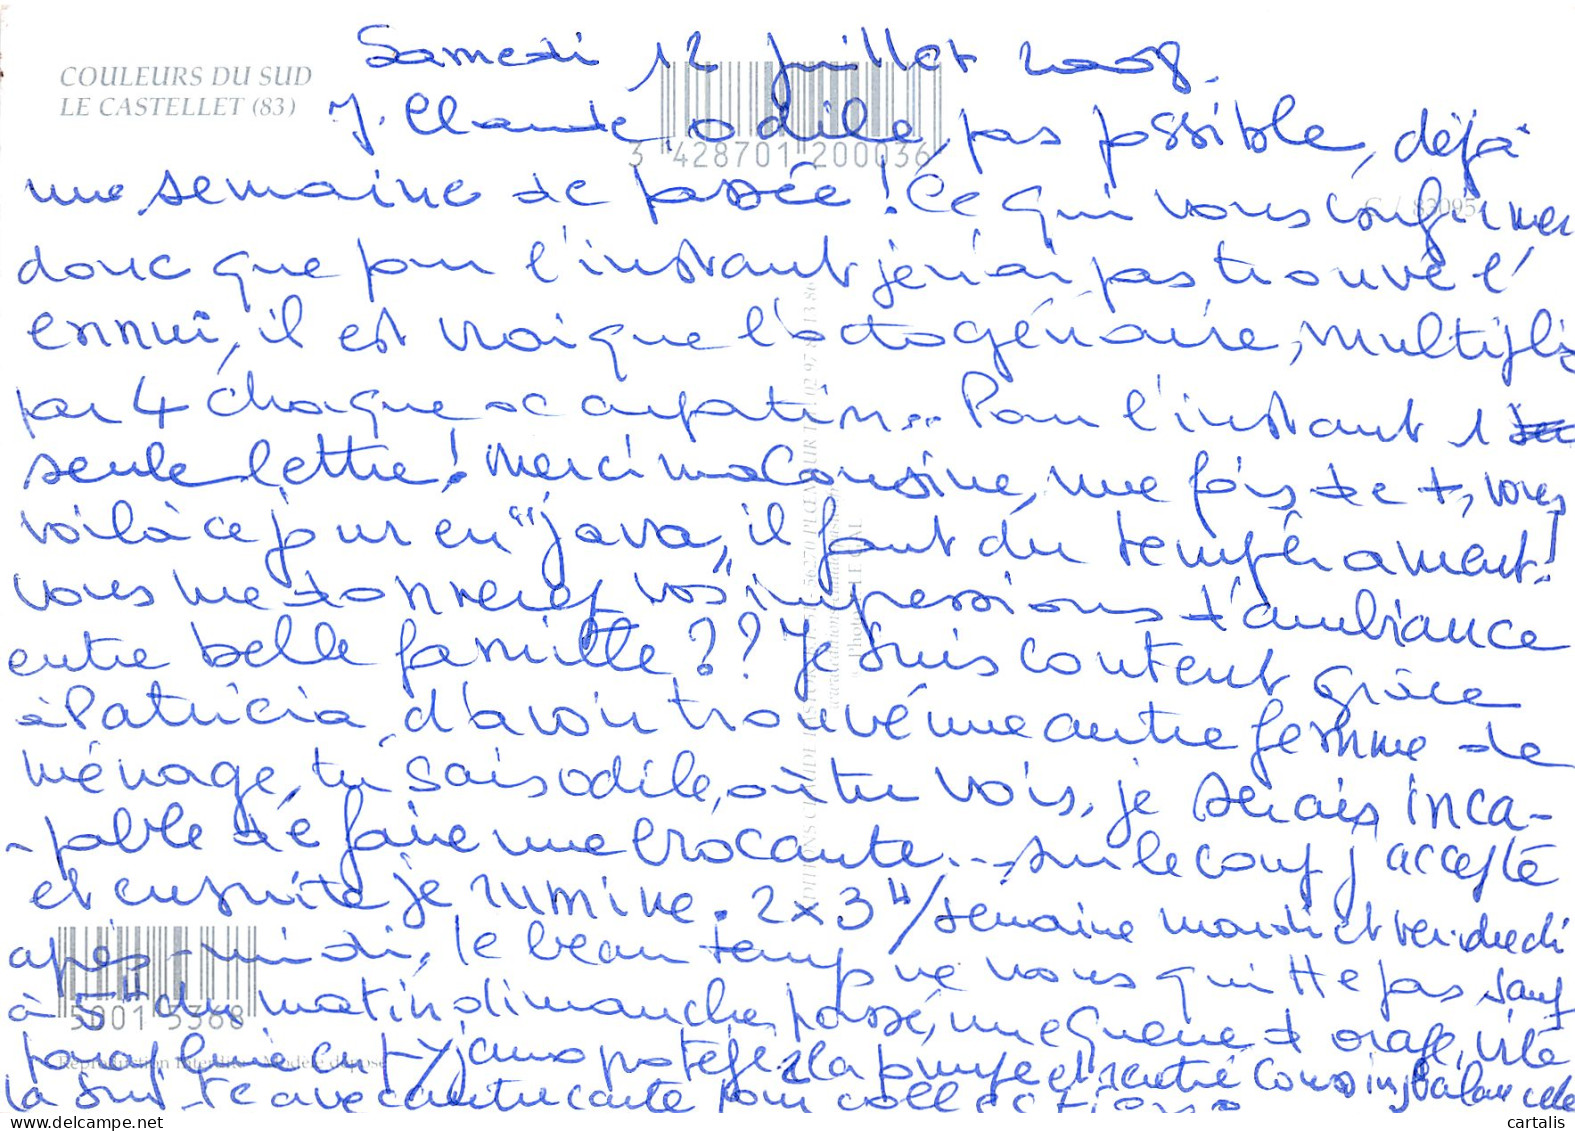 COULEURS DU SUD
LE CASTELLET (83)
Samedi 12 Juillet 2008.
J. Claude Odile, pas possible, déjà
3 428701 200036
une semaine de passée ! Ce qui vous confirmer
83095
donc que pour l'instant je n'ai pas trouvé l'
ennui, il est vrai que l'octogénaire, multipli
par 4 chaque occupation... Pour l'instant 1
seule lettre ! Merci ma Cousine, une fois de +, vous
voilà ce jour en "java", il faut du tempérament !
vous me donnerez vos impressions d'ambiance
entre belle famille ?? Je suis content grâce
à Patricia, d'avoir trouvé une autre femme de
ménage, tu sais Odile, où tu vois, je serais inca-
-pable de faire une brocante... sur le coup j'accepte
et ensuite je rumine. 2 x 3H/semaine mardi et vendredi
après-midi, le beau temps ne vous quitte pas sauf
à 5H du matin dimanche passé, une queue d'orage, vite
5001 5368
parapluie en pyjama protéger la pompe et rentré
Reproduction Interdite - Modèle déposé
la suite avec autre carte pour collections
cartalis